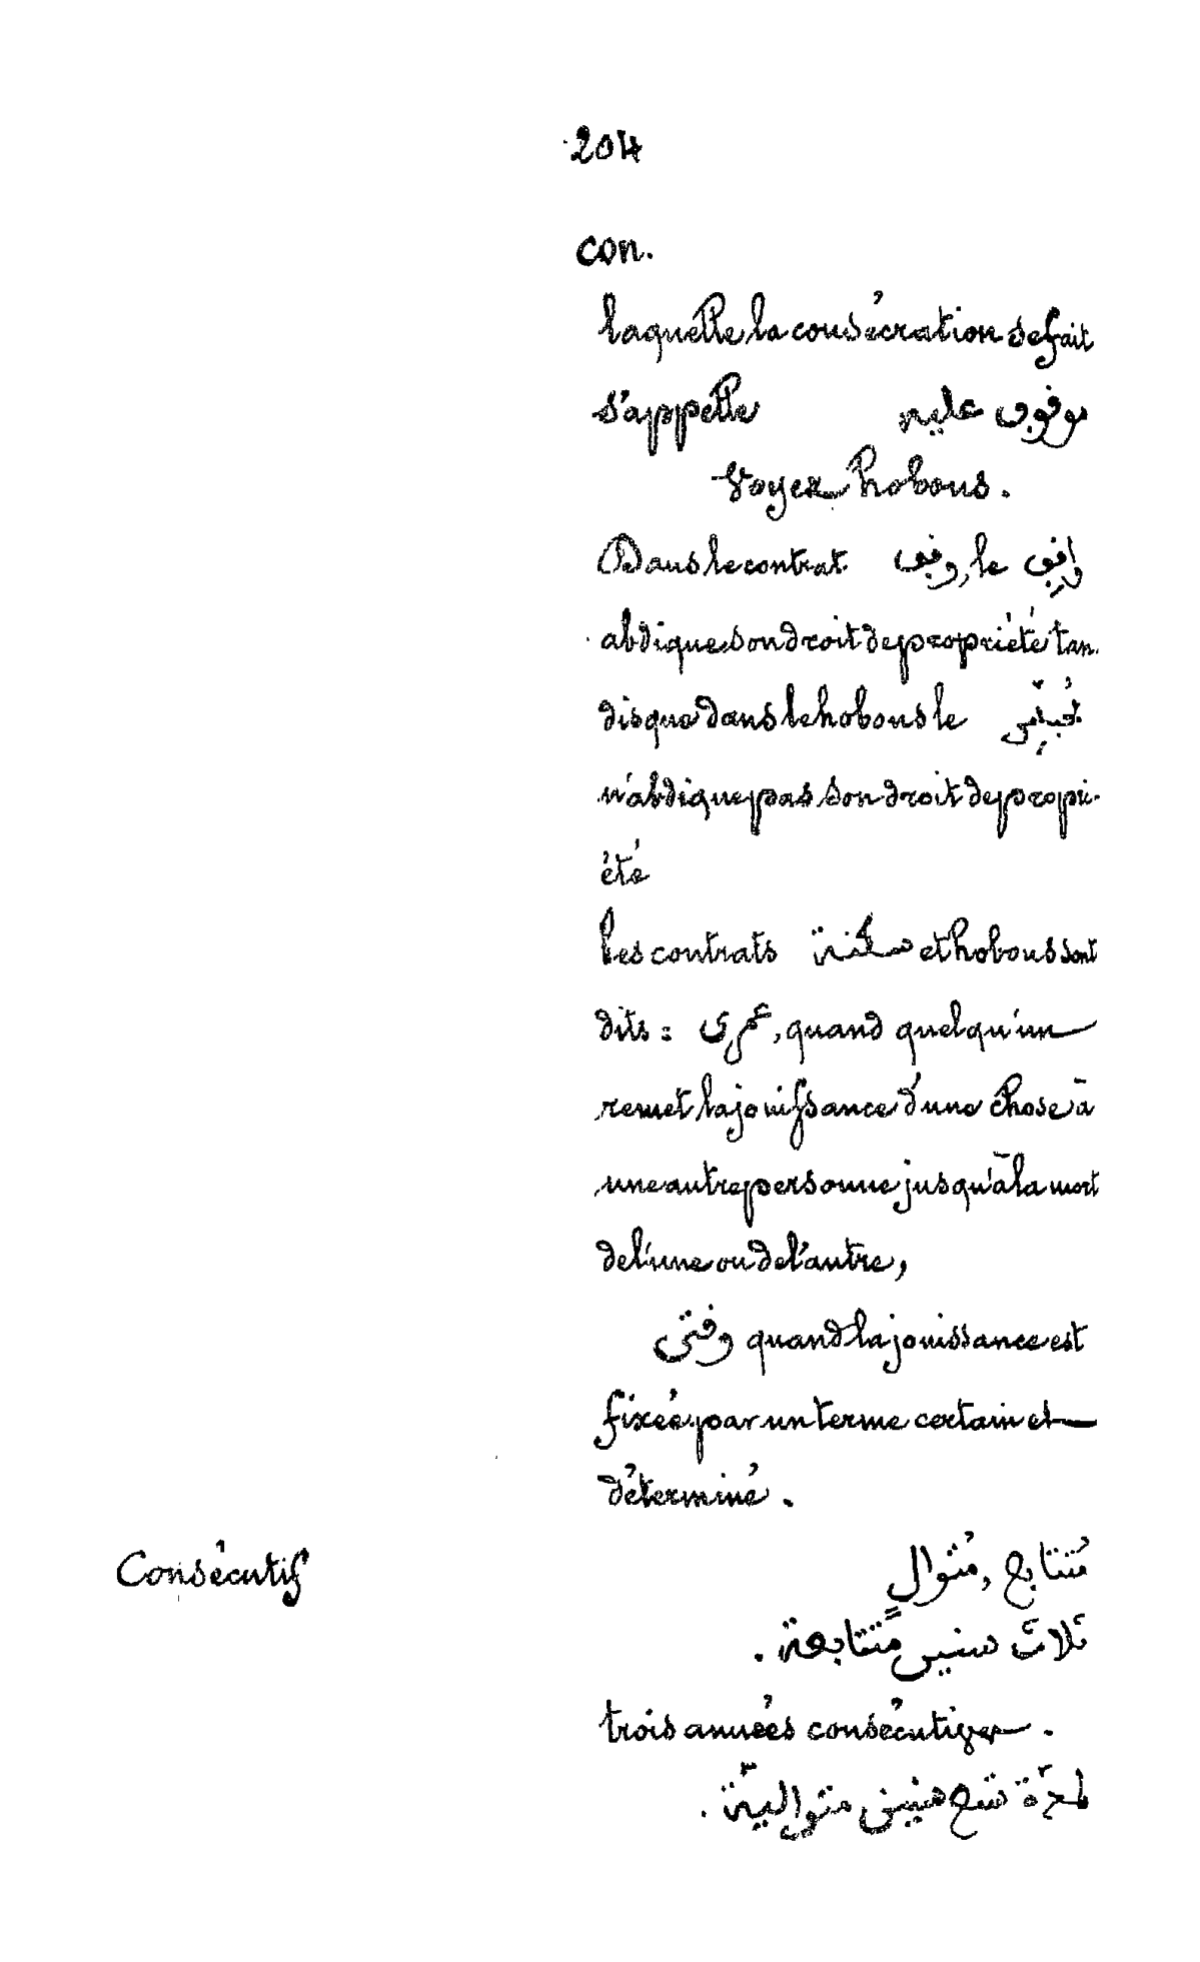 204
con.
laquelle la consécration se fait
s'appelle موقوف عليه
Voyez hobous.
Dans le contrat وقف, le واقف
abdique son droit de propriété tan-
dis que dans le hobous le مُحَبِّس
n'abdique pas son droit de propri-
été
les contrats سكنة et hobous sont
dits : عمرى, quand quelqu'un
remet la jouissance d'une chose à
une autre personne jusqu'à la mort
de l'une ou de l'autre,
وقتى quand la jouissance est
fixée par un terme certain et
déterminé.
Consécutif مُتتابع, مُتوالٍ
ثلاث سنين مُتتابعة.
trois années consécutives.
لمدّة تسع سنين متوالية.